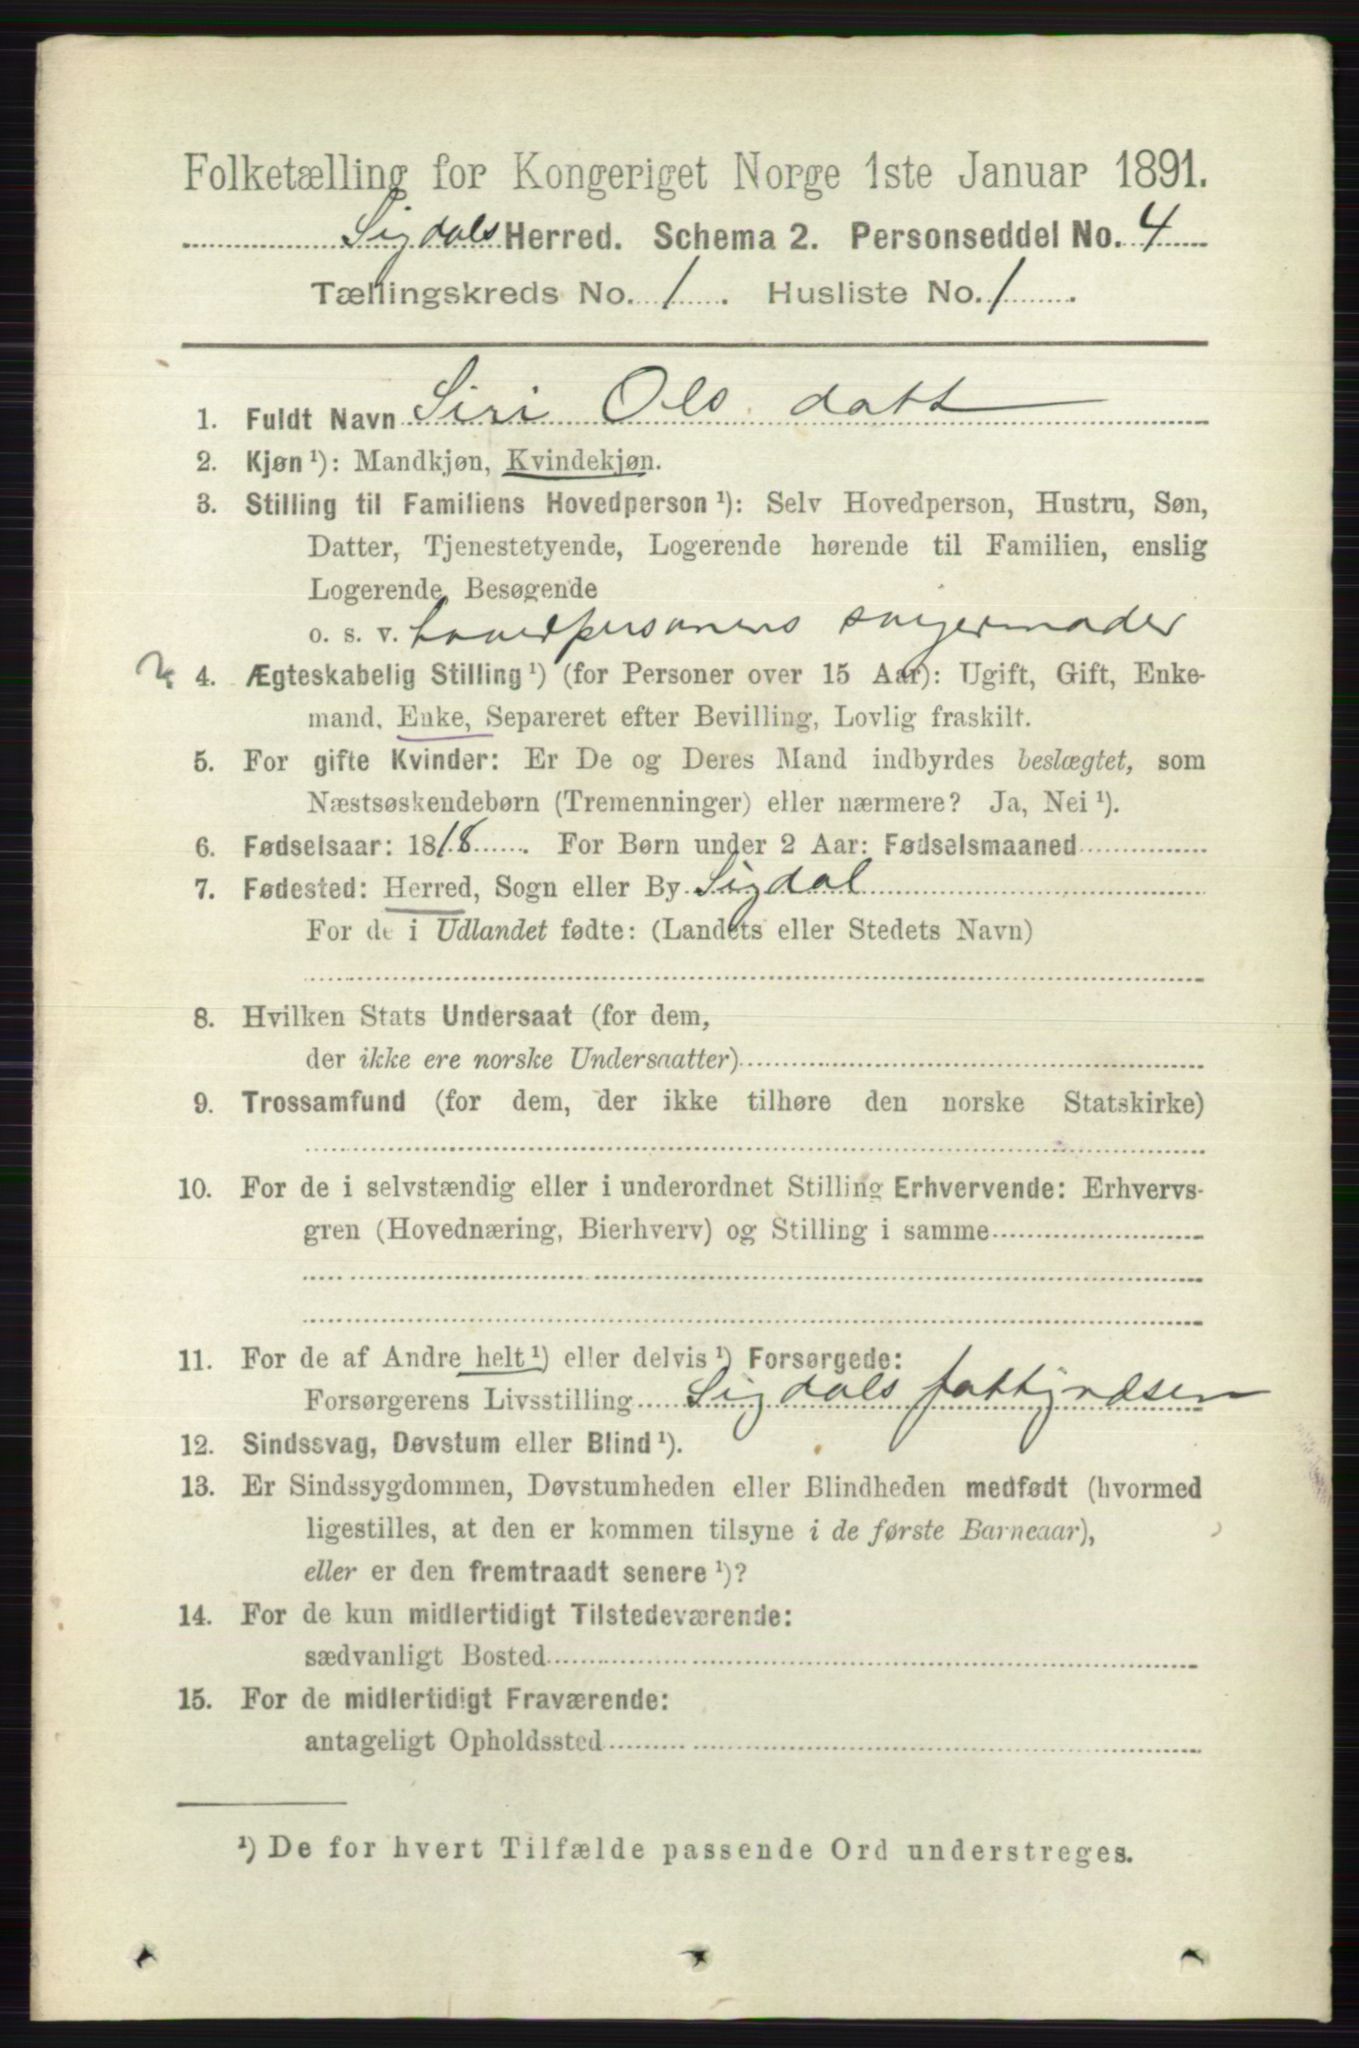 Folketælling for Kongeriget Norge 1ste Januar 1891.
Sigdals Herred. Schema 2. Personseddel No. 4
Tællingskreds No. 1. Husliste No. 1.
1. Fuldt Navn Siri Ols datt
2. Kjøn ¹): Mandkjøn, Kvindekjøn.
3. Stilling til Familiens Hovedperson ¹): Selv Hovedperson, Hustru, Søn,
Datter, Tjenestetyende, Logerende hørende til Familien, enslig
Logerende, Besøgende
o. s. v. hovedpersonens svigermoder
4. Ægteskabelig Stilling ¹) (for Personer over 15 Aar): Ugift, Gift, Enke-
mand, Enke, Separeret efter Bevilling, Lovlig fraskilt.
5. For gifte Kvinder: Er De og Deres Mand indbyrdes beslægtet, som
Næstsøskendebørn (Tremenninger) eller nærmere? Ja, Nei ¹).
6. Fødselsaar: 1818. For Børn under 2 Aar: Fødselsmaaned
7. Fødested: Herred, Sogn eller By Sigdal
For de i Udlandet fødte: (Landets eller Stedets Navn)
8. Hvilken Stats Undersaat (for dem,
der ikke ere norske Undersaatter)
9. Trossamfund (for dem, der ikke tilhøre den norske Statskirke)
10. For de i selvstændig eller i underordnet Stilling Erhvervende: Erhvervs-
gren (Hovednæring, Bierhverv) og Stilling i samme
11. For de af Andre helt ¹) eller delvis ¹) Forsørgede:
Forsørgerens Livsstilling Sigdals fattigvæsen
12. Sindssvag, Døvstum eller Blind ¹).
13. Er Sindssygdommen, Døvstumheden eller Blindheden medfødt (hvormed
ligestilles, at den er kommen tilsyne i de første Barneaar),
eller er den fremtraadt senere ¹)?
14. For de kun midlertidigt Tilstedeværende:
sædvanligt Bosted
15. For de midlertidigt Fraværende:
antageligt Opholdssted
¹) De for hvert Tilfælde passende Ord understreges.